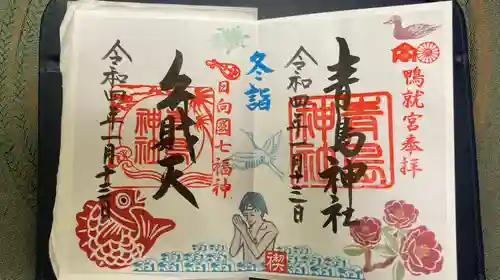 鴨就宮奉拝
青島神社
青島神社
令和四年一月十三日
冬詣
禊
日向國七福神
弁財天
神社
令和四年一月十三日